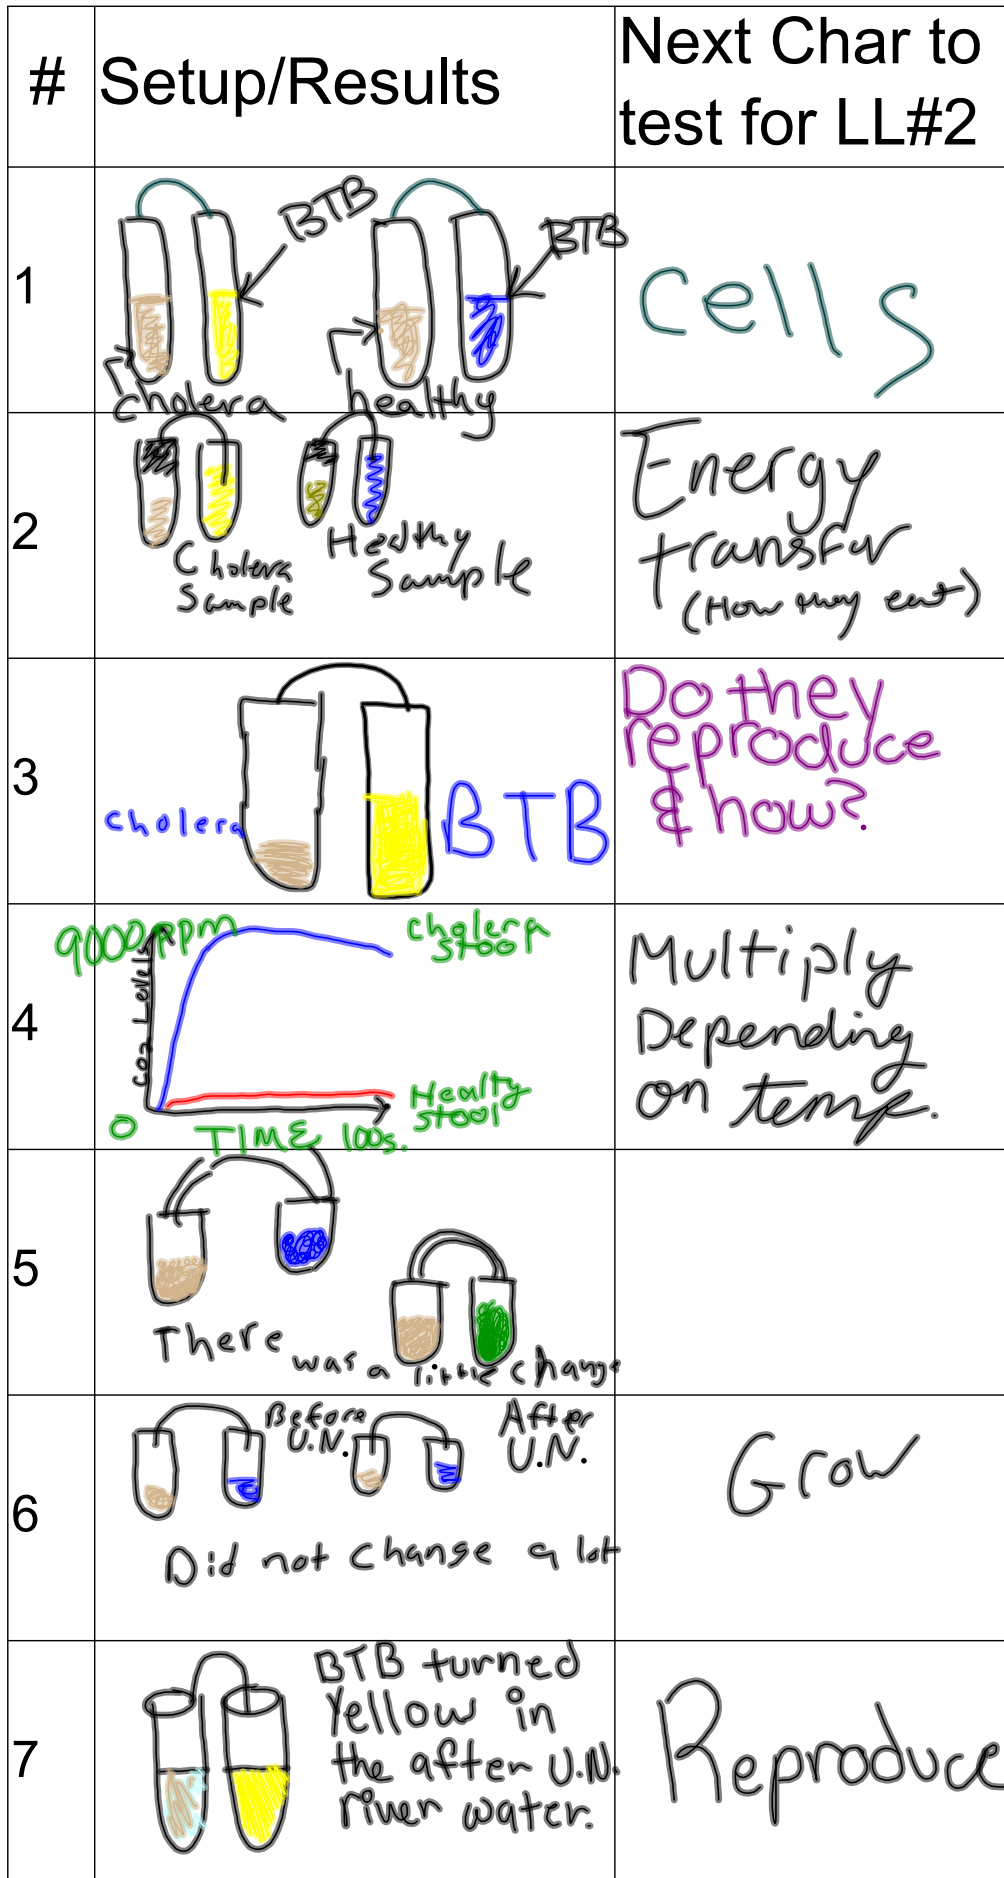 # Setup/Results Next Char to
test for LL#2
1
BTB
BTB
cholera
healthy
cells
2
Cholera
Sample
Healthy
Sample
Energy
transfer
(How they eat)
3
cholera
BTB
Do they
reproduce
& how?
4
9000 ppm
CO2 Levels
0
TIME 100s.
cholera
stool
Mulitiply
Depending
on temp.
Healty
stool
5
There was a little change
6
Before
U.N.
After
U.N.
Did not change a lot
Grow
7
BTB turned
Yellow in
the after U.N.
river water.
Reproduce